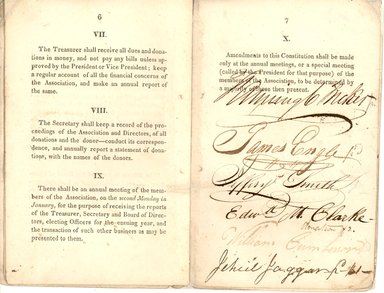 6
VII.
The Treasurer shall receive all dues and dona-
tions in money, and not pay any bills unless ap-
proved by the President or Vice President; keep
a regular account of all the financial concerns of
the Association, and make an annual report of
the same.
VIII.
The Secretary shall keep a record of the pro-
ceedings of the Association and Directors, of all
donations and the donor—conduct its correspond-
ence, and annually report a statement of dona-
tions, with the names of the donors.
IX.
There shall be an annual meeting of the mem-
bers of the Association, on the second Monday in
January, for the purpose of receiving the reports
of the Treasurer, Secretary and Board of Direc-
tors, electing Officers for the ensuing year, and
the transaction of such other business as may be
presented to them.
7
X.
Amendments to this Constitution shall be made
only at the annual meetings, or a special meeting
(called by the President for that purpose) of the
members of the Association, to be determined by
a majority of those then present.
James Engle
Smith
Edwd. M Clarke
William
Jehiel Jaggar